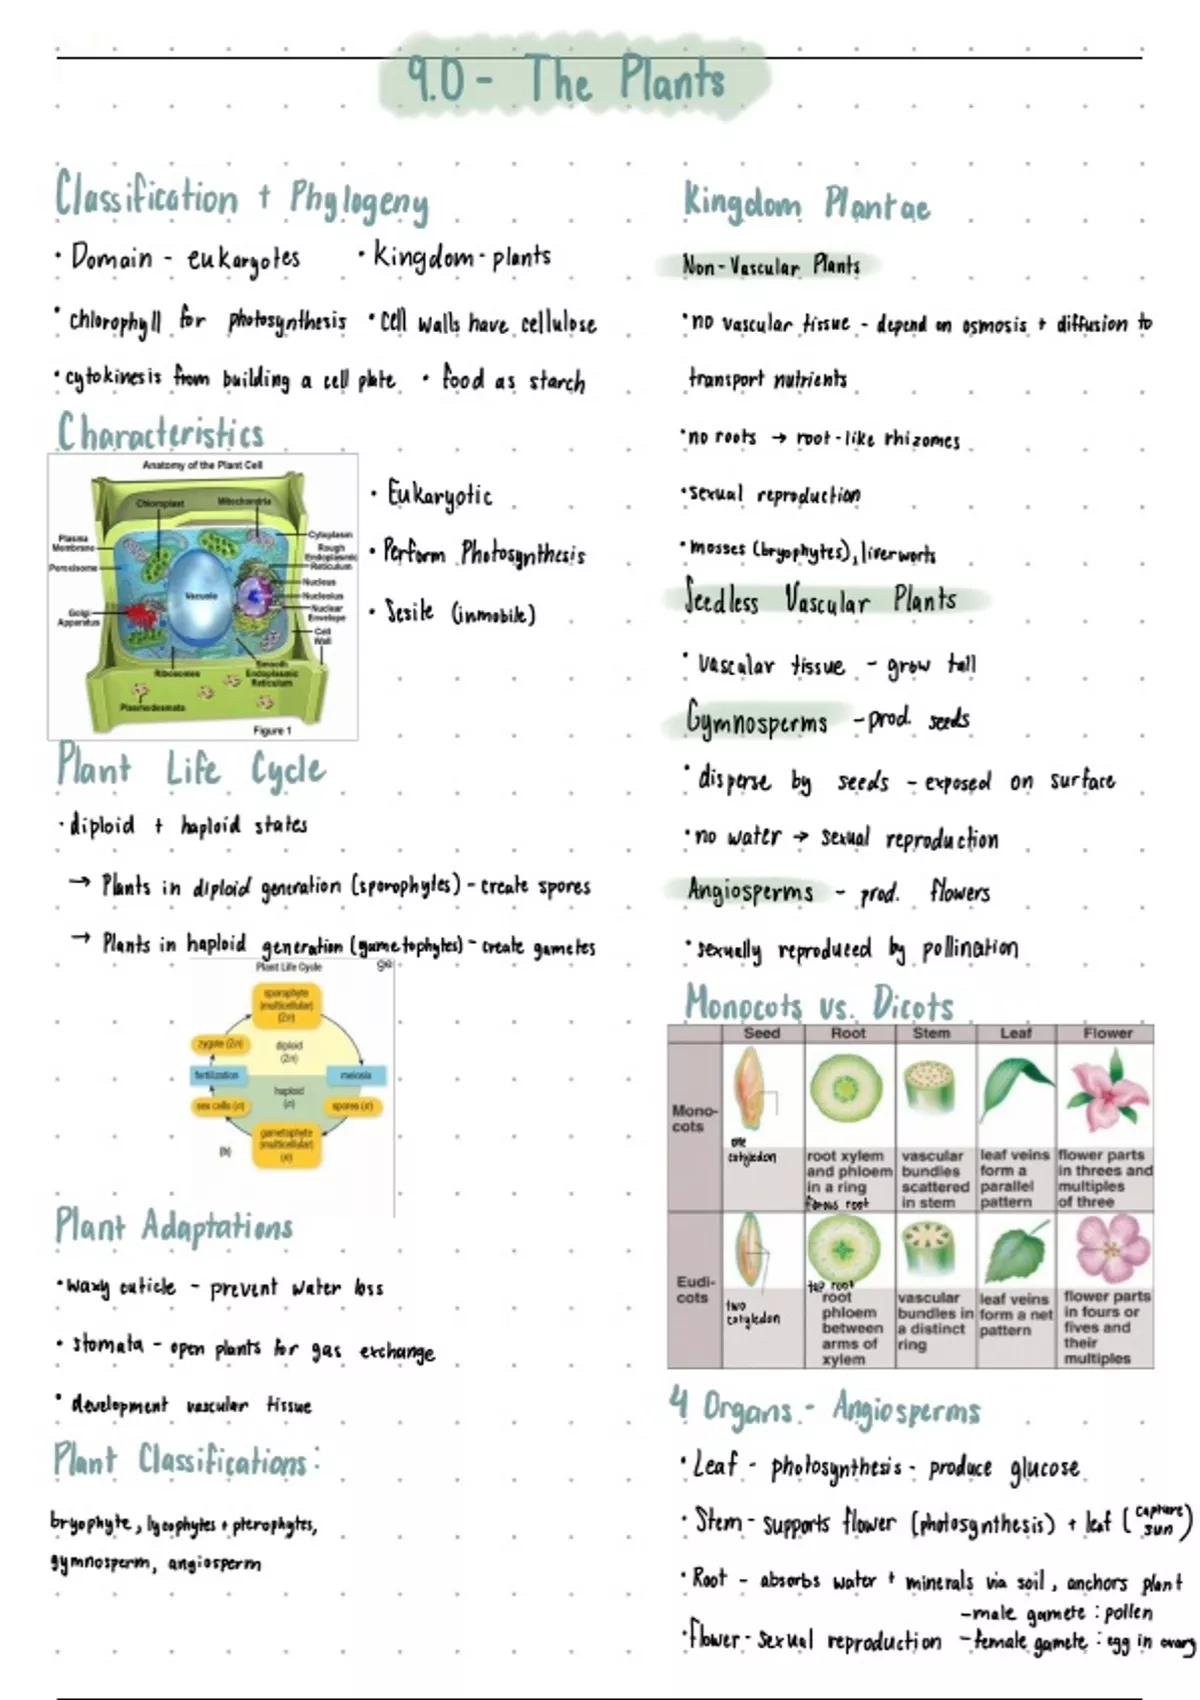 9.0 - The Plants
Classification + Phylogeny
• Domain - eukaryotes • Kingdom - plants
• chlorophyll for photosynthesis • Cell walls have cellulose
• cytokinesis from building a cell plate • food as starch
Characteristics
Anatomy of the Plant Cell
Chloroplast
Mitochondria
Plasma
Membrane
Peroxisome
Golgi
Apparatus
Vacuole
Cytoplasm
Rough
Endoplasmic
Reticulum
Nucleus
Nucleolus
Nuclear
Envelope
Cell
Wall
Ribosomes
Smooth
Endoplasmic
Reticulum
Plasmodesmata
Figure 1
• Eukaryotic
• Perform Photosynthesis
• Sesile (inmobile)
Plant Life Cycle
• diploid + haploid states
→ Plants in diploid generation (sporophytes) - create spores
→ Plants in haploid generation (gametophytes) - create gametes
Plant Life Cycle
sporophyte
(multicellular)
(2n)
zygote (2n)
diploid
(2n)
fertilization
meiosis
haploid
(n)
sex cells (n)
spores (n)
gametophyte
(multicellular)
(n)
(b)
Plant Adaptations
• waxy cuticle - prevent water loss
• stomata - open plants for gas exchange
• development vascular tissue
Plant Classifications:
bryophyte, lycophytes + pterophytes,
gymnosperm, angiosperm
Kingdom Plantae
Non-Vascular Plants
• no vascular tissue - depend on osmosis + diffusion to
transport nutrients
• no roots → root-like rhizomes
• sexual reproduction
• mosses (bryophytes), liverworts
Seedless Vascular Plants
• vascular tissue - grow tall
Gymnosperms - prod. seeds
• disperse by seeds - exposed on surface
• no water → sexual reproduction
Angiosperms - prod. flowers
• sexually reproduced by pollination
Monocots vs. Dicots
Seed Root Stem Leaf Flower
Mono-
cots
one
cotyledon
root xylem
and phloem
in a ring
fibrous root
vascular
bundles
scattered
in stem
leaf veins
form a
parallel
pattern
flower parts
in threes and
multiples
of three
Eudi-
cots
two
cotyledon
tap root
root
phloem
between
arms of
xylem
vascular
bundles in
a distinct
ring
leaf veins
form a net
pattern
flower parts
in fours or
fives and
their
multiples
4 Organs - Angiosperms
• Leaf - photosynthesis - produce glucose
• Stem - supports flower (photosynthesis) + leaf (capture sun)
• Root - absorbs water + minerals via soil, anchors plant
- male gamete : pollen
• flower - sexual reproduction - female gamete : egg in ovary